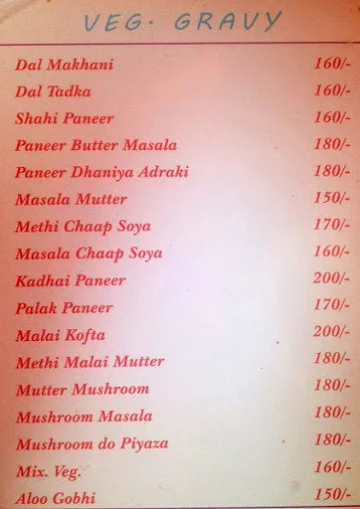 VEG. GRAVY
Dal Makhani 160/-
Dal Tadka 160/-
Shahi Paneer 160/-
Paneer Butter Masala 180/-
Paneer Dhaniya Adraki 180/-
Masala Mutter 150/-
Methi Chaap Soya 170/-
Masala Chaap Soya 160/-
Kadhai Paneer 200/-
Palak Paneer 170/-
Malai Kofta 200/-
Methi Malai Mutter 180/-
Mutter Mushroom 180/-
Mushroom Masala 180/-
Mushroom do Piyaza 180/-
Mix. Veg. 160/-
Aloo Gobhi 150/-